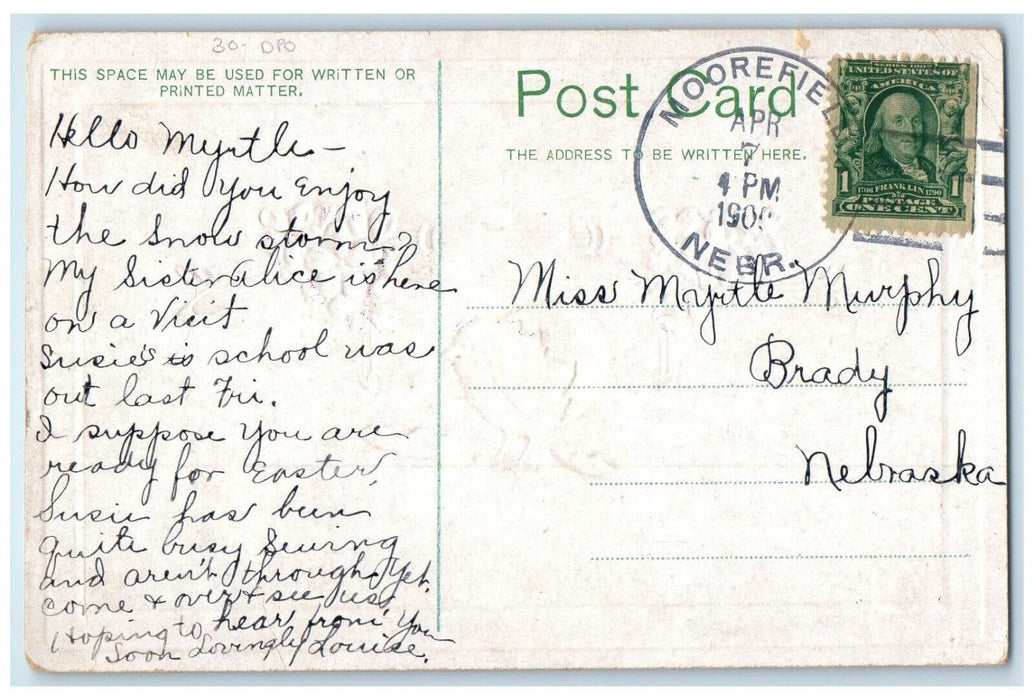 30- DPO
THIS SPACE MAY BE USED FOR WRITTEN OR
PRINTED MATTER.
Hello Myrtle –
How did you enjoy
the snow storm?
My Sister Alice is here
on a Visit
Susie's school was
out last Fri.
I suppose you are
ready for Easter,
Susie has been
quite busy Sewing
and aren't through yet.
come & over & see us,
Hoping to hear from you
Soon Lovingly Louise.
Post Card
THE ADDRESS TO BE WRITTEN HERE.
MOOREFIELD
APR
7
4 PM
190
NEBR.
SERIES 1902
UNITED STATES OF
AMERICA
1706 FRANKLIN 1790
1 POSTAGE 1
ONE CENT
Miss Myrtle Murphy
Brady
Nebraska